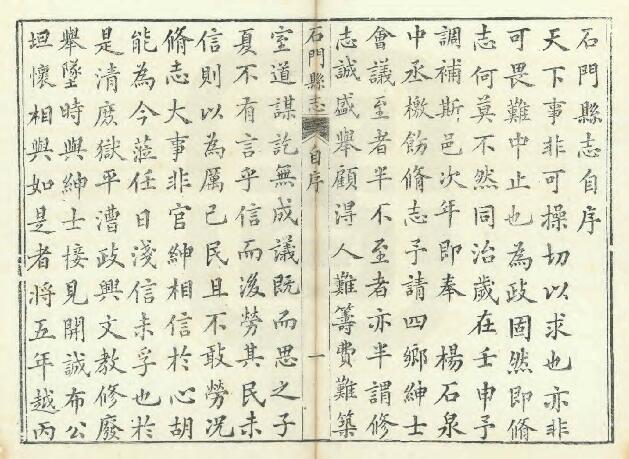 石門縣志自序
天下事非可操切以求也亦非
可畏難中止也為政固然即脩
志何莫不然同治歲在壬申予
調補斯邑次年即奉 楊石泉
中丞檄飭脩志予請四鄉紳士
會議至者半不至者亦半謂修
志誠盛舉顧得人難籌費難築
石門縣志 自序 一
室道謀訖無成議既而思之子
夏不有言乎信而後勞其民未
信則以為厲己民且不敢勞況
脩志大事非官紳相信於心胡
能為今蒞任日淺信未孚也於
是清庶獄平漕政興文教修廢
舉墜時與紳士接見開誠布公
坦懷相與如是者將五年越丙